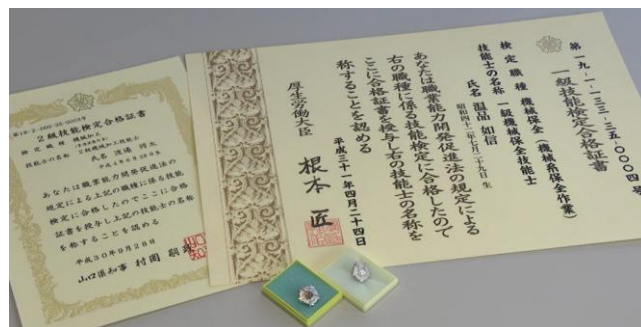 第一九-一-一三三-三五-〇〇〇四号
一級技能検定合格証書
検定職種 機械保全(機械系保全作業)
技能士の名称 一級機械保全技能士
氏名 温品 如信
昭和四十二年七月二十九日 生
あなたは職業能力開発促進法の規定による
右の職種に係る技能検定に合格したので
ここに合格証書を授与し右の技能士の名称を
称することを認める
平成三十一年四月二十四日
厚生労働大臣 根本 匠
2級技能検定合格証書
検定職種 機械加工
技能士の名称 2級機械加工技能士
氏名 渡邊 将太
あなたは職業能力開発促進法の
規定による上記の職種に係る技能
検定に合格したのでここに合格
証書を授与し上記の技能士の名称
を称することを認める
平成30年9月28日
山口県知事 村岡 嗣政